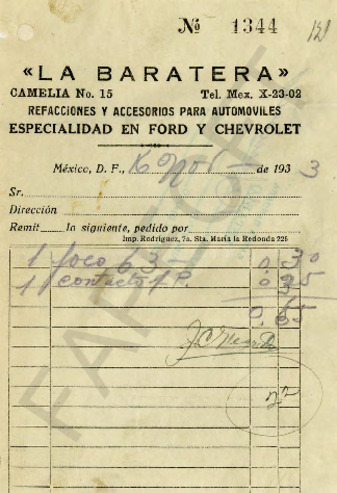 Nº 1344
«LA BARATERA»
CAMELIA No. 15 Tel. Mex. X-23-02
REFACCIONES Y ACCESORIOS PARA AUTOMOVILES
ESPECIALIDAD EN FORD Y CHEVROLET
México, D. F., Nov de 193 3
Sr.
Dirección
Remit la siguiente, pedido por
Imp. Rodríguez, 7a. Sta. María la Redonda 225
1 foco 63 0.30
1 contacto 1 P. 0.35
0.65
22